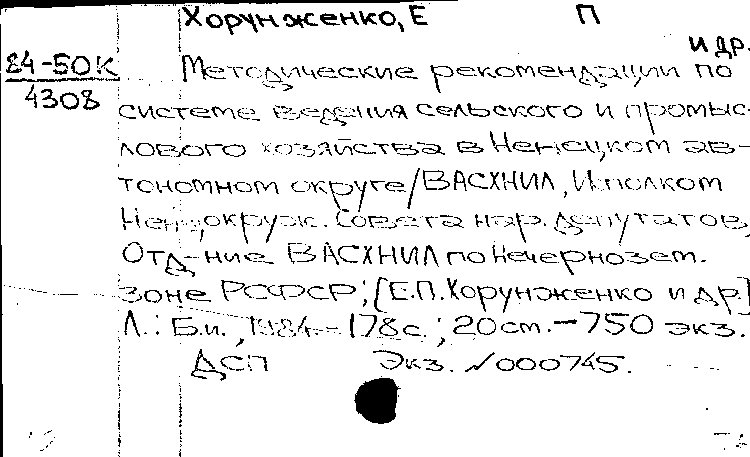 Хорунженко, Е П
и др.
84-50К
4308
Методические рекомендации по
системе ведения сельского и промыс-
лового хозяйства в Ненецком ав-
тономном округе/ВАСХНИЛ, Исполком
Ненец.окруж. Совета нар. депутатов,
Отд-ние ВАСХНИЛ по Нечернозем.
зоне РСФСР; [Е.П. Хорунженко и др.]
Л.: Б.и., 1984. - 178с.; 20см. - 750 экз.
ДСП Экз. №000745.